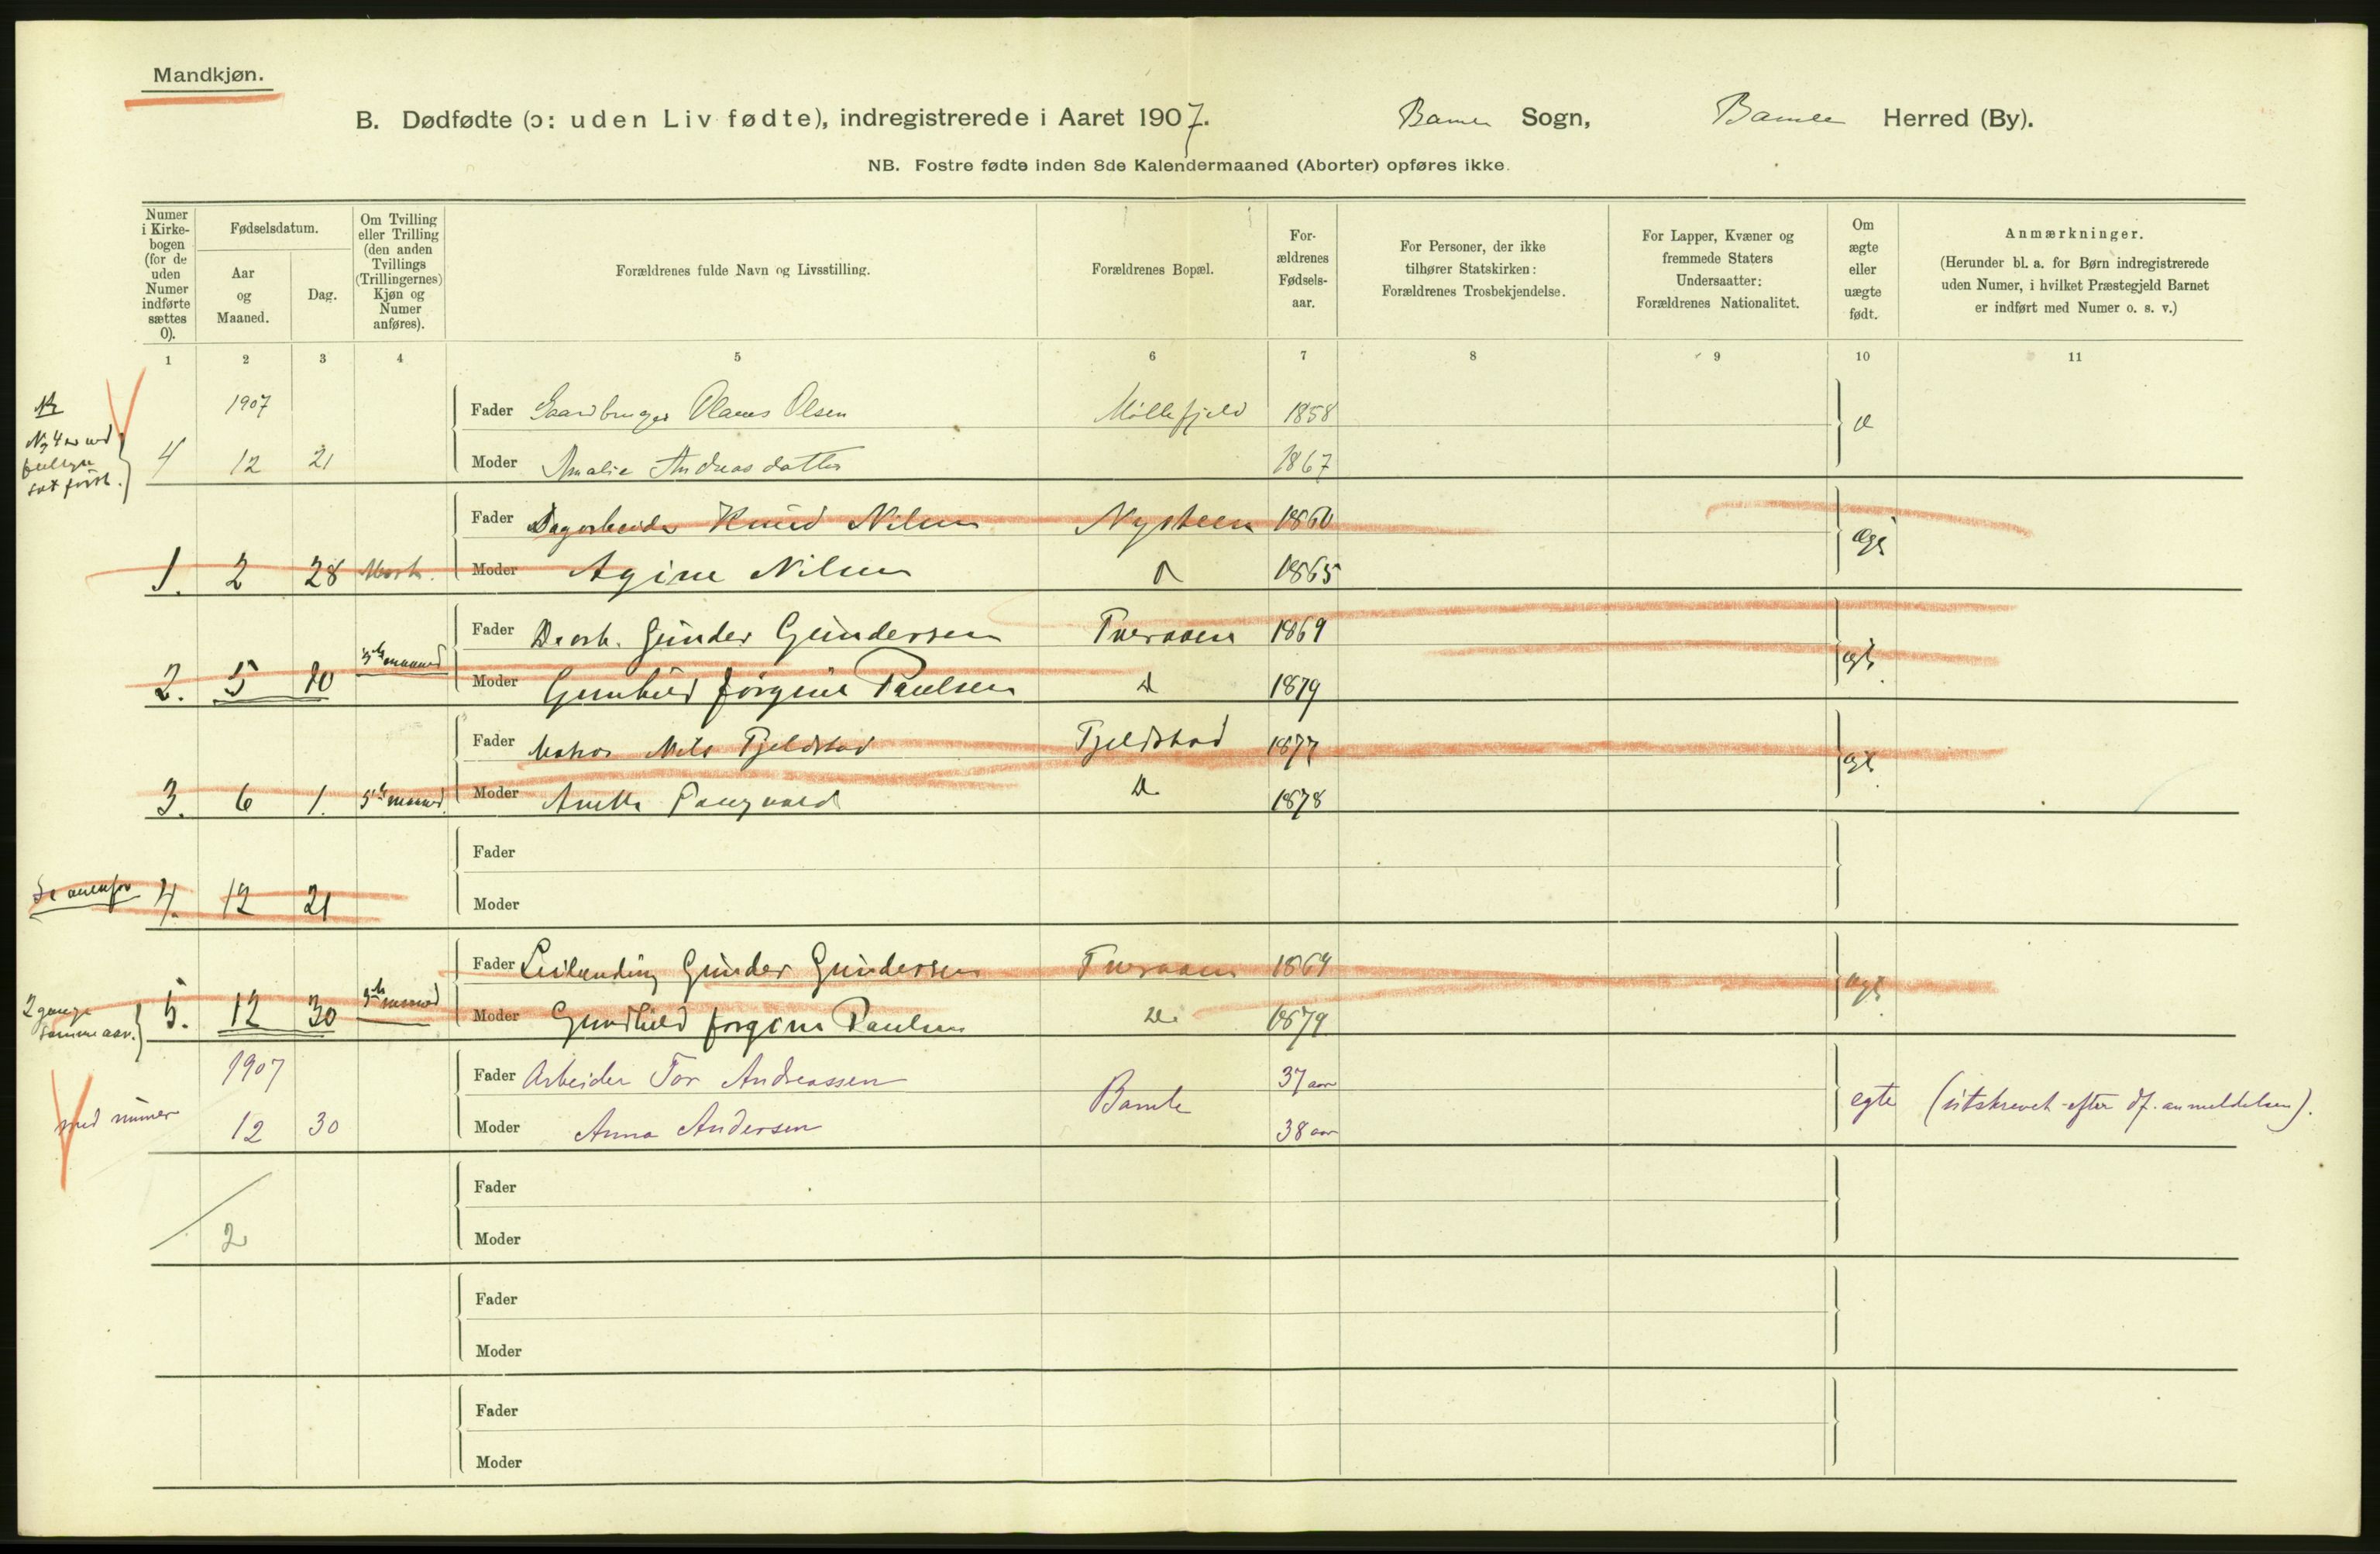 Mandkjøn.
B. Dødfødte (ɔ: uden Liv fødte), indregistrerede i Aaret 1907. Bamle Sogn, Bamle Herred (By).
NB. Fostre fødte inden 8de Kalendermaaned (Aborter) opføres ikke.
Numer i Kirke-bogen (for de uden Numer indførte sættes 0).
Fødselsdatum.
Aar og Maaned.
Dag.
Om Tvilling eller Trilling (den anden Tvillings (Trillingernes) Kjøn og Numer anføres).
Forældrenes fulde Navn og Livsstilling.
Forældrenes Bopæl.
For-ældrenes Fødsels-aar.
For Personer, der ikke tilhører Statskirken: Forældrenes Trosbekjendelse.
For Lapper, Kvæner og fremmede Staters Undersaatter: Forældrenes Nationalitet.
Om ægte eller uægte født.
Anmærkninger.
(Herunder bl. a. for Børn indregistrerede uden Numer, i hvilket Præstegjeld Barnet er indført med Numer o. s. v.)
1 2 3 4 5 6 7 8 9 10 11
1907 Fader Gaardbruger Olaves Olsen Møllefjeld 1858
4 12 21 Moder Amalie Andreasdatter 1867
Fader Dagarbeider Knud Nilsen Nysteen 1860
1. 2 28 Moder Agine Nilsen 1865
Fader Gunder Gundersen Tveraaen 1869 egt.
2. 5 10 5te maaned Moder Gunhild Jørgine Paulsen Do 1879
Fader Matros Nils Fjeldstad Fjeldstad 1877 egt.
3. 6 1. 5te maaned Moder Anette Do 1878
Fader
Se ovenfor 4. 12 21 Moder
Fader Leilending Gunder Gundersen Tveraaen 1869 egt.
2 gange samme aar. 5. 12 30 3die maaned Moder Gundhild Jørgine Paulsen Do. 1879
1907 Fader Arbeider Tor Andreassen Bamle 37 aar egte (utskrevet efter df. anmeldelsen).
med numer 12 30 Moder Anna Andersen 38 aar
Fader
2 Moder
Fader
Moder
Fader
Moder